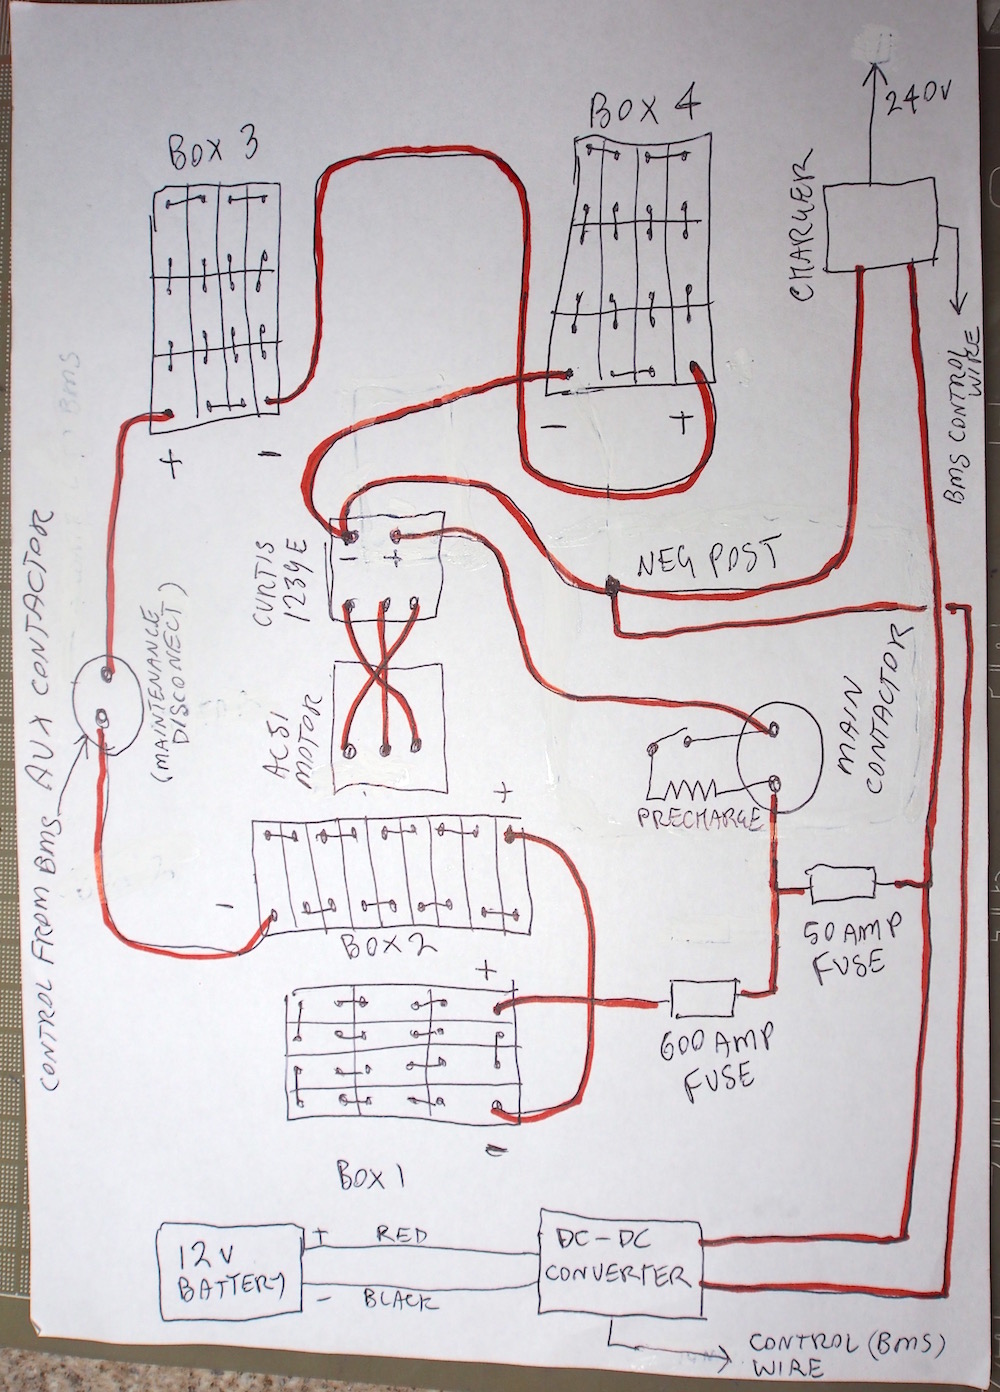 BOX 3
BOX 4
240V
CHARGER
BMS CONTROL
WIRE
+
-
-
+
BMS
CURTIS
1239E
-
+
NEG POST
CONTROL FROM BMS AUX CONTACTOR
(MAINTENANCE
DISCONECT)
AC51
MOTOR
MAIN
CONTACTOR
PRECHARGE
+
-
BOX 2
50 AMP
FUSE
+
600 AMP
FUSE
-
BOX 1
12V
BATTERY
+
RED
-
BLACK
DC-DC
CONVERTER
CONTROL (BMS)
WIRE